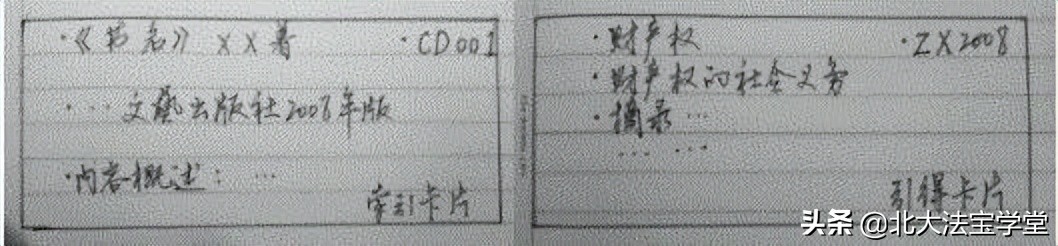 ·《书名》××著 ·CD001
·… 文藝出版社2008年版
·内容概述：…
索引卡片
·财产权 ·ZX2008
·财产权的社会义务
·摘录…
… …
引得卡片
头条 @北大法宝学堂